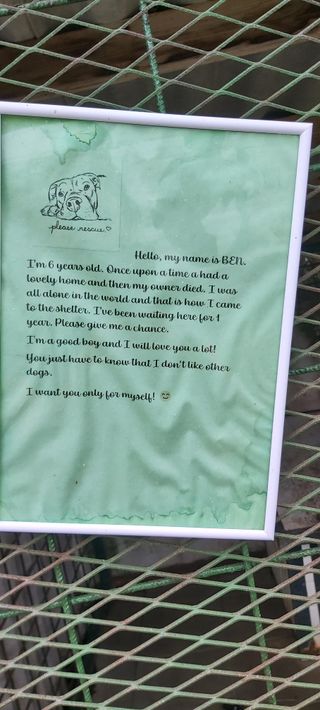 please rescue♡
Hello, my name is BEN.
I'm 6 years old. Once upon a time a had a
lovely home and then my owner died. I was
all alone in the world and that is how I came
to the shelter. I've been waiting here for 1
year. Please give me a chance.
I'm a good boy and I will love you a lot!
You just have to know that I don't like other
dogs.
I want you only for myself! 😊